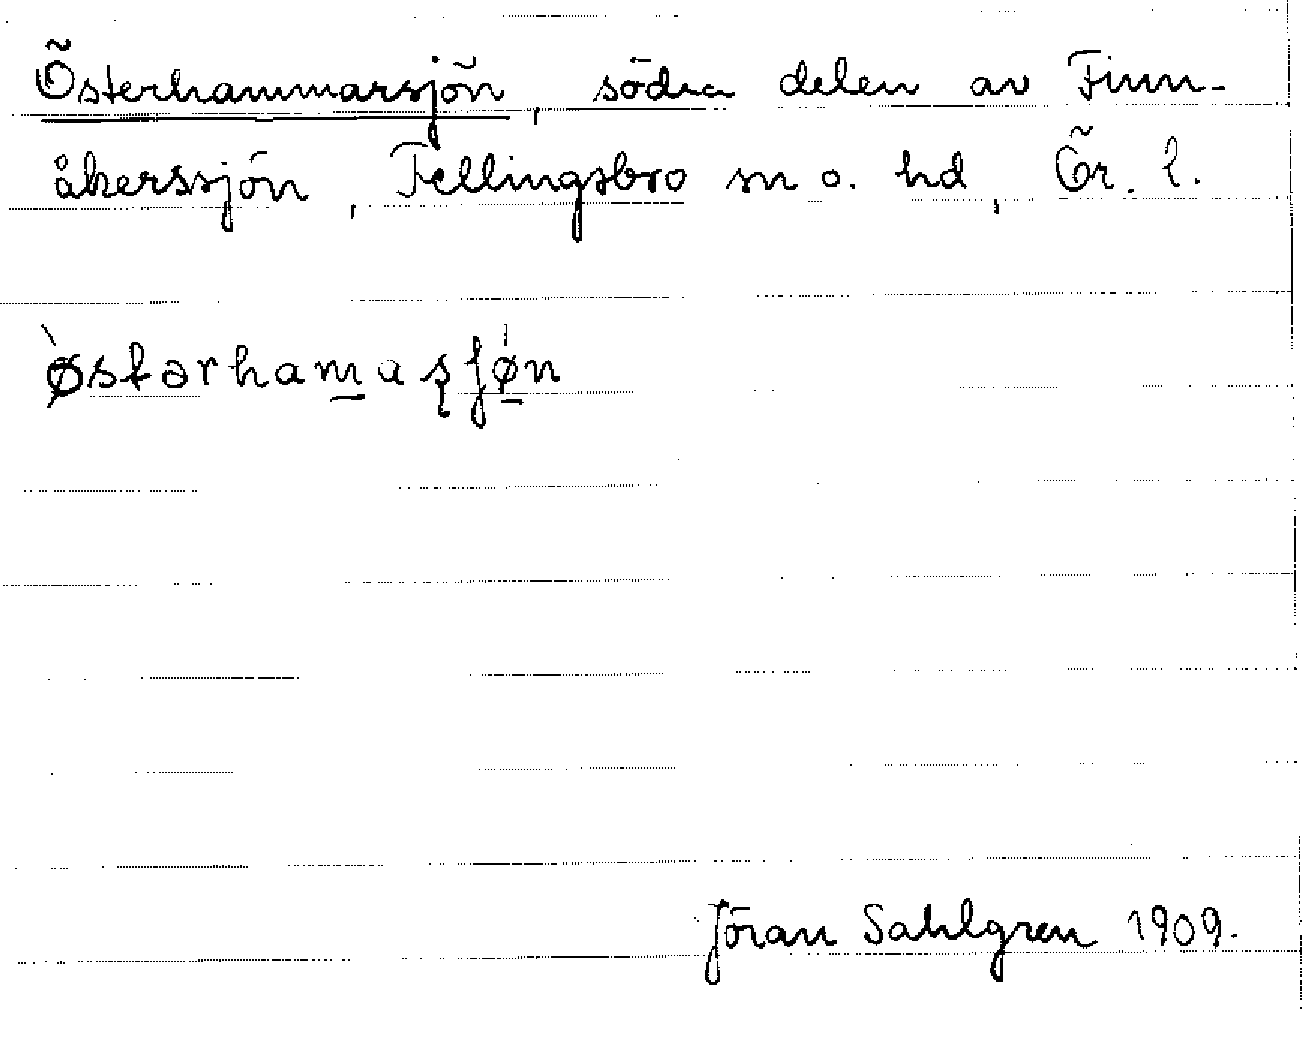 Österhammarsjön, södra delen av Finn-
åkerssjön, Fellingsbro sn o. hd, Ör. l.
ø̀stərhamaʂʃø̍n
Jöran Sahlgren 1909.